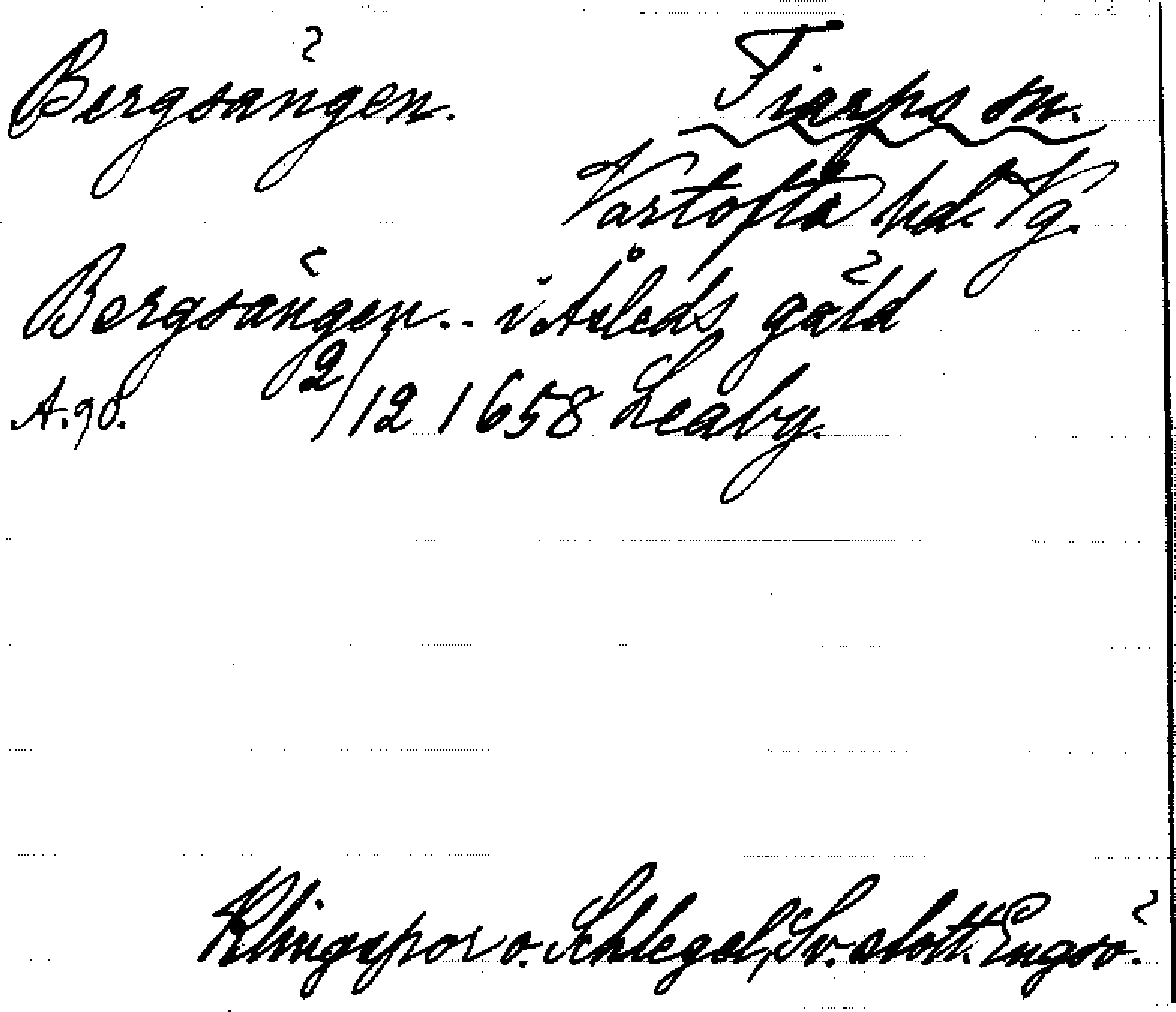 Bergsängen. Tiarps sn.
Vartofta hd. Vg.
Bergsängen.. i Åsleds gäld
A.90. 2/12 1658 Leaby.
Klingspor o. Schlegel, Sv. slott. Engsö.